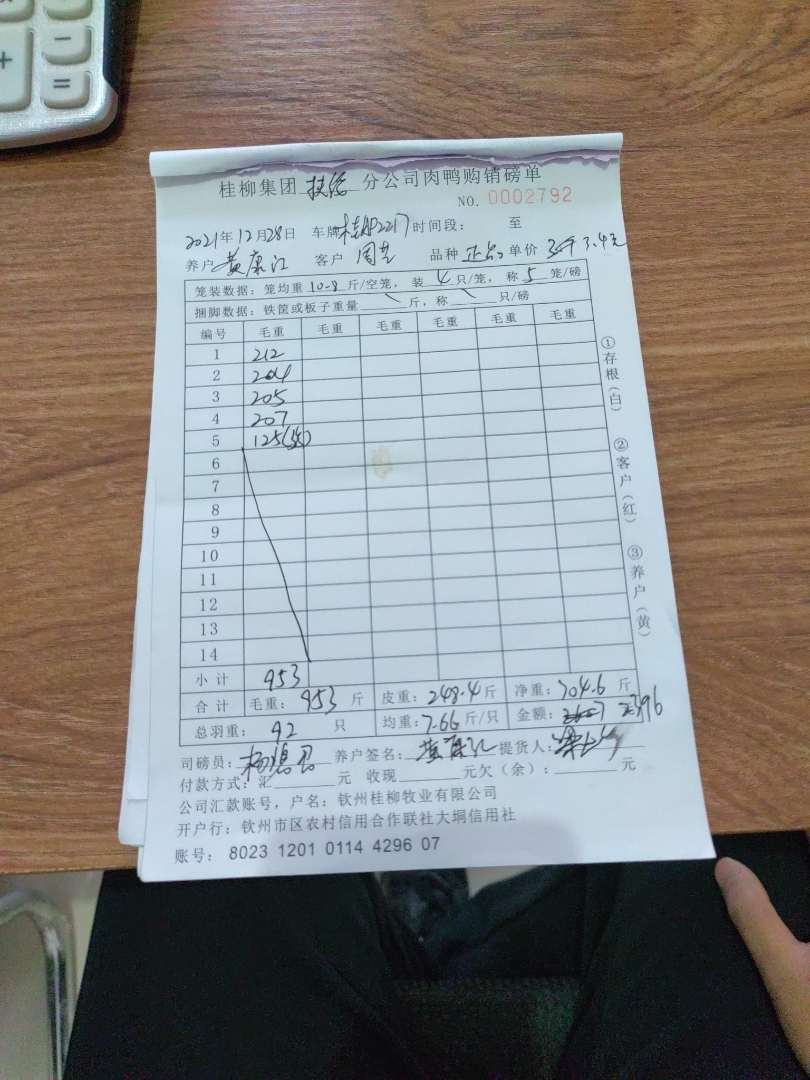 +
−
=
桂柳集团 扶绥 分公司肉鸭购销磅单
NO. 0002792
2021年12月28日 车牌 2217 时间段： 至
养户 黄康江 客户 周 品种 正品 单价 3.4元
笼装数据：笼均重 10-8 斤/空笼，装 4 只/笼，称 5 笼/磅
捆脚数据：铁筐或板子重量 \ 斤，称 \ 只/磅
编号 毛重 毛重 毛重 毛重 毛重 毛重
1 212
2 204
3 205
4 207
5 125
6
7
8
9
10
11
12
13
14
小计 953
合计 毛重：953 斤 皮重：248.4斤 净重：704.6 斤
总羽重：92 只 均重：7.66斤/只 金额： 2396
司磅员： 养户签名：黄康江 提货人：
付款方式：汇 元 收现 元欠（余）： 元
公司汇款账号，户名：钦州桂柳牧业有限公司
开户行：钦州市区农村信用合作联社大垌信用社
账号：8023 1201 0114 4296 07
①存根（白）
②客户（红）
③养户（黄）